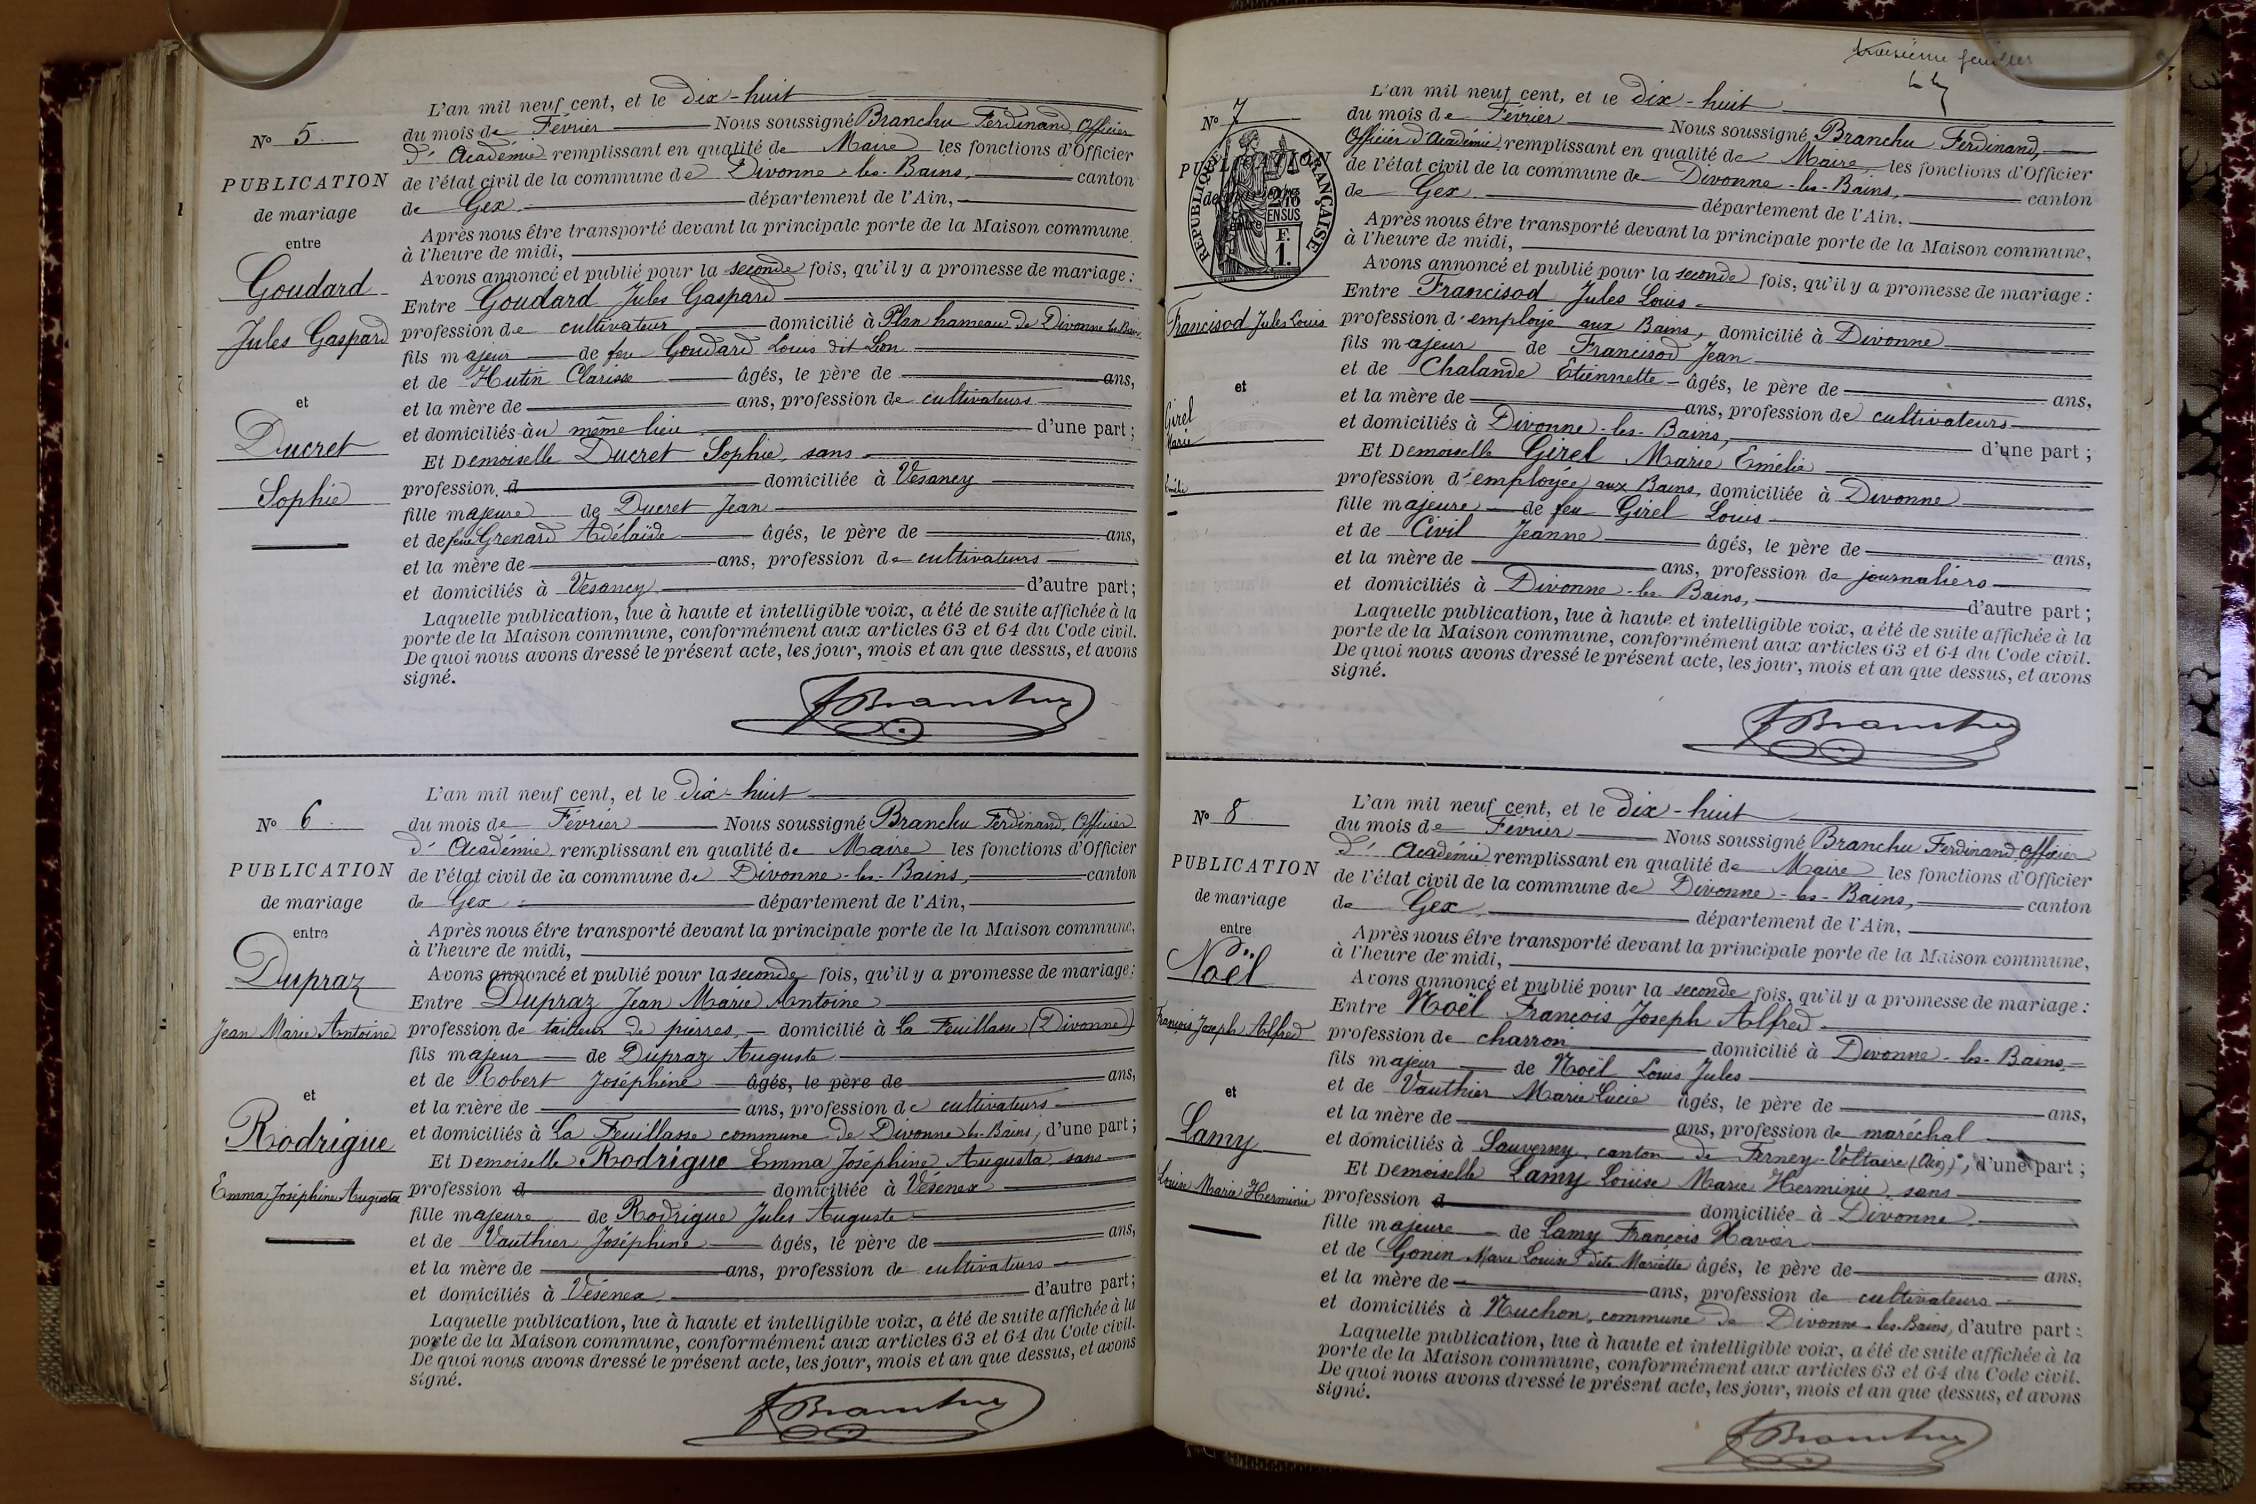 No 5
PUBLICATION
de mariage
entre
Goudard
Jules Gaspard
et
Ducret
Sophie
L'an mil neuf cent, et le dix-huit
du mois de Février Nous soussigné Branchu Ferdinand, Officier
d'Académie remplissant en qualité de Maire les fonctions d'Officier
de l'état civil de la commune de Divonne-les-Bains, canton
de Gex. département de l'Ain,
Après nous être transporté devant la principale porte de la Maison commune,
à l'heure de midi,
Avons annoncé et publié pour la seconde fois, qu'il y a promesse de mariage:
Entre Goudard Jules Gaspard
profession de cultivateur domicilié à Plan hameau de Divonne les Bains
fils majeur de feu Goudard Louis dit Léon
et de Hutin Clarisse âgés, le père de ans,
et la mère de ans, profession de cultivateurs
et domiciliés au même lieu d'une part;
Et Demoiselle Ducret Sophie, sans
profession d domiciliée à Vesancy
fille majeure de Ducret Jean
et de feue Grenard Adélaïde âgés, le père de ans,
et la mère de ans, profession de cultivateurs
et domiciliés à Vesancy d'autre part;
Laquelle publication, lue à haute et intelligible voix, a été de suite affichée à la
porte de la Maison commune, conformément aux articles 63 et 64 du Code civil.
De quoi nous avons dressé le présent acte, les jour, mois et an que dessus, et avons
signé.
FBranchu
No 6
PUBLICATION
de mariage
entre
Dupraz
Jean Marie Antoine
et
Rodrigue
Emma Joséphine Augusta
L'an mil neuf cent, et le dix-huit
du mois de Février Nous soussigné Branchu Ferdinand, Officier
d'Académie remplissant en qualité de Maire les fonctions d'Officier
de l'état civil de la commune de Divonne-les-Bains, canton
de Gex département de l'Ain,
Après nous être transporté devant la principale porte de la Maison commune,
à l'heure de midi,
Avons annoncé et publié pour la seconde fois, qu'il y a promesse de mariage:
Entre Dupraz Jean Marie Antoine
profession de tailleur de pierres, domicilié à La Feuillasse (Divonne)
fils majeur de Dupraz Auguste
et de Robert Joséphine âgés, le père de ans,
et la mère de ans, profession de cultivateurs
et domiciliés à La Feuillasse commune de Divonne les-Bains, d'une part;
Et Demoiselle Rodrigue Emma Joséphine Augusta, sans
profession d domiciliée à Vésenex
fille majeure de Rodrigue Jules Auguste
et de Vauthier Joséphine âgés, le père de ans,
et la mère de ans, profession de cultivateurs
et domiciliés à Vésenex d'autre part;
Laquelle publication, lue à haute et intelligible voix, a été de suite affichée à la
porte de la Maison commune, conformément aux articles 63 et 64 du Code civil.
De quoi nous avons dressé le présent acte, les jour, mois et an que dessus, et avons
signé.
FBranchu
troisième
No 7
PUBLICATION
de mariage
entre
RÉPUBLIQUE FRANÇAISE
2/10
EN SUS
F.
1.
Francisod Jules Louis
et
Girel
Marie
Emélie
L'an mil neuf cent, et le dix-huit
du mois de Février Nous soussigné Branchu Ferdinand,
Officier d'Académie, remplissant en qualité de Maire les fonctions d'Officier
de l'état civil de la commune de Divonne-les-Bains, canton
de Gex. département de l'Ain,
Après nous être transporté devant la principale porte de la Maison commune,
à l'heure de midi,
Avons annoncé et publié pour la seconde fois, qu'il y a promesse de mariage:
Entre Francisod Jules Louis
profession d'employé aux Bains, domicilié à Divonne
fils majeur de Francisod Jean
et de Chalande Etiennette âgés, le père de ans,
et la mère de ans, profession de cultivateurs
et domiciliés à Divonne-les-Bains, d'une part;
Et Demoiselle Girel Marie Emélie
profession d'employée aux Bains, domiciliée à Divonne
fille majeure de feu Girel Louis
et de Civil Jeanne âgés, le père de ans,
et la mère de ans, profession de journaliers
et domiciliés à Divonne-les-Bains, d'autre part;
Laquelle publication, lue à haute et intelligible voix, a été de suite affichée à la
porte de la Maison commune, conformément aux articles 63 et 64 du Code civil.
De quoi nous avons dressé le présent acte, les jour, mois et an que dessus, et avons
signé.
FBranchu
No 8
PUBLICATION
de mariage
entre
Noël
François Joseph Alfred
et
Lamy
Louise Marie Herminie
L'an mil neuf cent, et le dix-huit
du mois de Février Nous soussigné Branchu Ferdinand, Officier
d'Académie remplissant en qualité de Maire les fonctions d'Officier
de l'état civil de la commune de Divonne-les-Bains, canton
de Gex. département de l'Ain,
Après nous être transporté devant la principale porte de la Maison commune,
à l'heure de midi,
Avons annoncé et publié pour la seconde fois, qu'il y a promesse de mariage:
Entre Noël François Joseph Alfred
profession de charron domicilié à Divonne-les-Bains
fils majeur de Noël Louis Jules
et de Vauthier Marie Lucie âgés, le père de ans,
et la mère de ans, profession de maréchal
et domiciliés à Sauverny, canton de Ferney-Voltaire (Ain), d'une part;
Et Demoiselle Lamy Louise Marie Herminie, sans
profession d domiciliée à Divonne
fille majeure de Lamy François Xavier
et de Gonin Marie Louise dite Mariette âgés, le père de ans,
et la mère de ans, profession de cultivateurs
et domiciliés à Ruchon, commune de Divonne-les-Bains, d'autre part:
Laquelle publication, lue à haute et intelligible voix, a été de suite affichée à la
porte de la Maison commune, conformément aux articles 63 et 64 du Code civil.
De quoi nous avons dressé le présent acte, les jour, mois et an que dessus, et avons
signé.
FBranchu